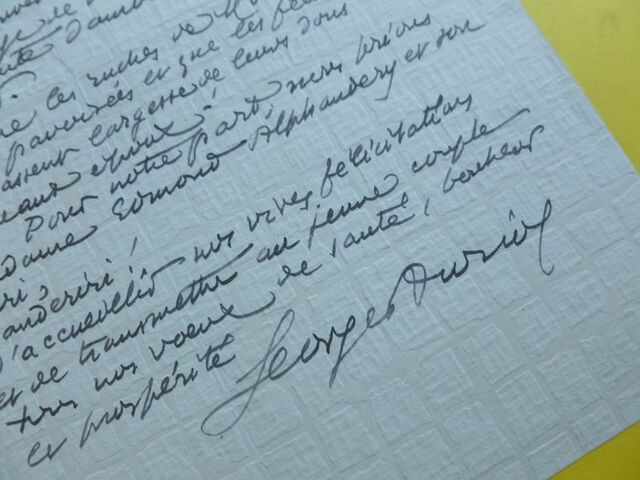 les ruches de
pavoisées et que les
largesse de leurs dons
Pour notre part, nous prions
dame Edmond Alphandéry et son
ri,
d'accueillir nos vives félicitations
et de transmettre au jeune couple
tous nos voeux de santé, bonheur
et prospérité Georges Duriol